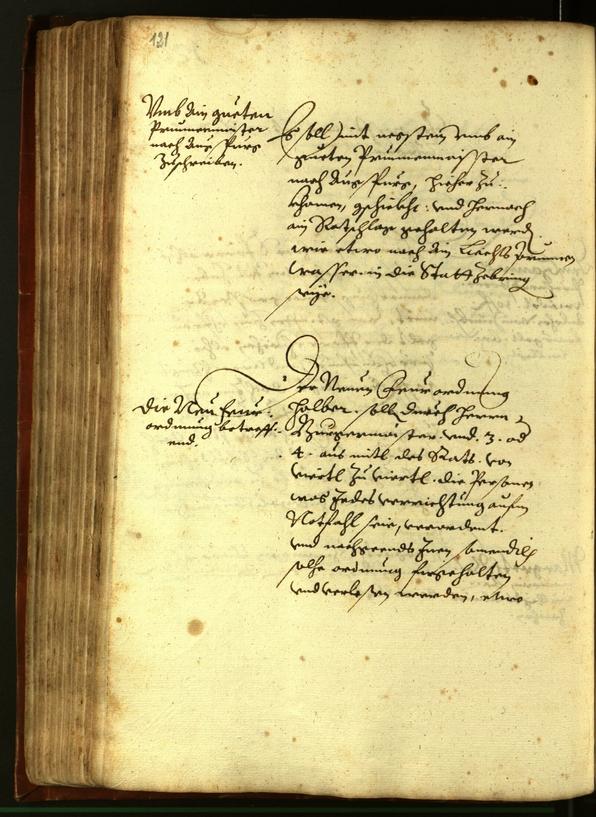 121
Umb ain gueten
Prunnenmaister
nach aus Purg
zuschreiben.
Es soll mit negstem umb ain
gueten Prunnenmaister
nach aus Purg, hieher zu
khomen, geschickht: und hernach
ain Ratschlag gehalten werd
wie etwo nach ain Prunnen
wasser in die Statt zebring
seye.
Die Neu Feur
ordnung betreff
end.
Der Neuen Feurordnung
halber, soll durch Herrn
Burgermaister und 3. od
4. aus mitl des Rats. von
viertl zu viertl die Personen
was Jedes verrichtung auf
Notfahl seie, verordent.
und nachgeends Inen
solhe ordnung firgehalten
und verlesen werden, etwo